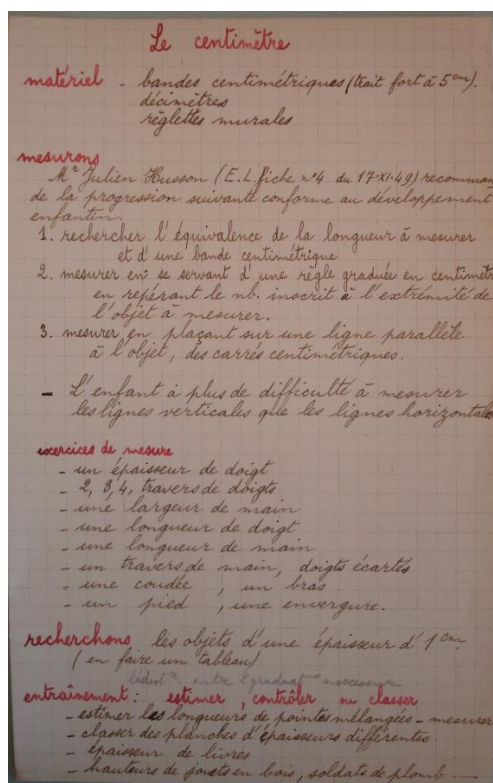 Le centimètre
matériel - bandes centimétriques (trait fort à 5 cm).
décimètres
règlettes murales
mesurons
Mr Julien Husson (E.L. fiche n°4 du 17-XI-49) recomman
de la progression suivante conforme au développement
enfantin.
1. rechercher l'équivalence de la longueur à mesurer
et d'une bande centimétrique
2. mesurer en se servant d'une règle graduée en centimèt
en repérant le nb. inscrit à l'extrémité de
l'objet à mesurer.
3. mesurer en plaçant sur une ligne parallèle
à l'objet, des carrés centimétriques.
- L'enfant à plus de difficulté à mesurer
les lignes verticales que les lignes horizontale
exercices de mesure
- un épaisseur de doigt
- 2, 3, 4, travers de doigts
- une largeur de main
- une longueur de doigt
- une longueur de main
- un travers de main, doigts écartés
- une coudée, un bras
- un pied, une envergure.
recherchons les objets d'une épaisseur d'1 cm
(en faire un tableau)
entre 2
entraînement : estimer, contrôler ou classer
- estimer les longueurs de pointes mélangées - mesurer
- classer des planches d'épaisseurs différentes.
- épaisseur de livres
- hauteurs de jouets en bois, soldats de plomb ----